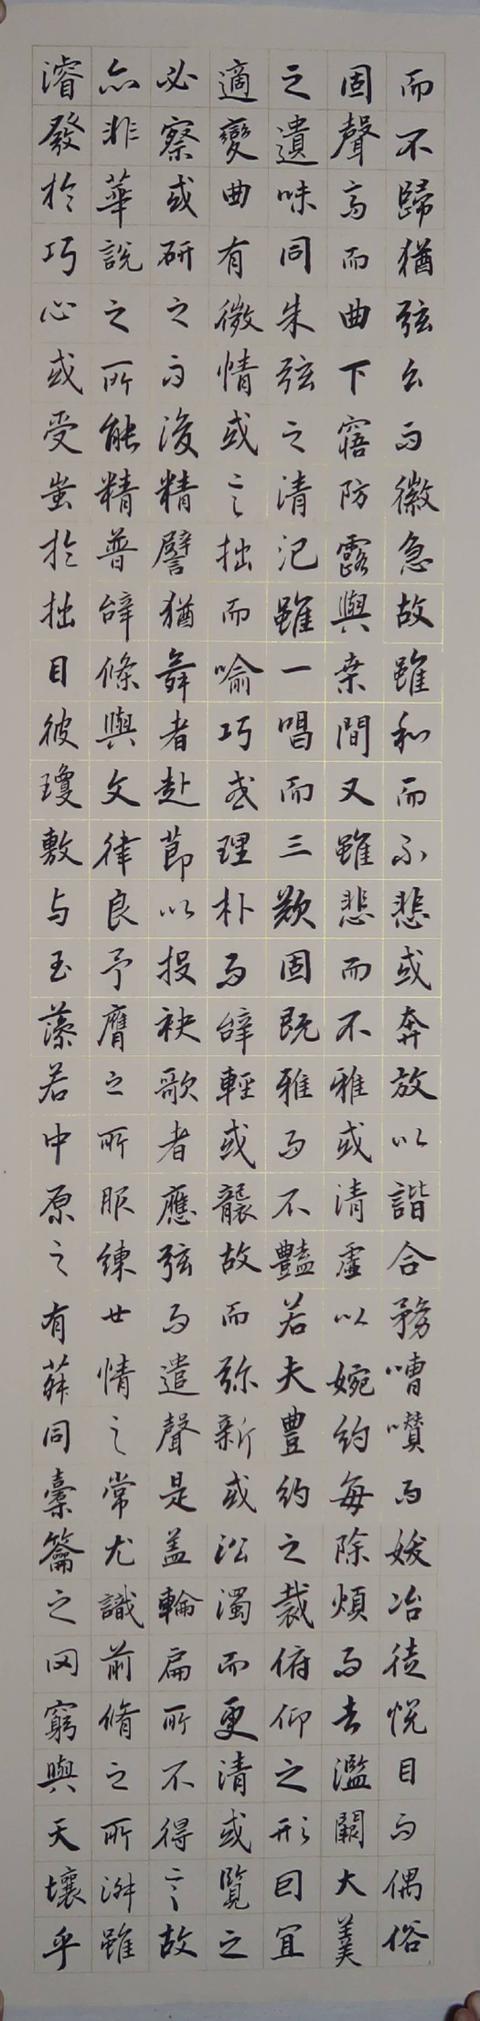 而不歸猶弦么而徽急故雖和而不悲或奔放以諧合務嘈囋而妖冶徒悅目而偶俗
固聲高而曲下寤防露與桒間又雖悲而不雅或清虛以婉約每除煩而去濫闕大羹
之遺味同朱弦之清氾雖一唱而三歎固既雅而不豔若夫豐約之裁俯仰之形因宜
適變曲有微情或言拙而喻巧或理朴而辭輕或襲故而弥新或沿濁而更清或覽之
必察或研之而後精譬猶舞者赴節以投袂歌者應弦而遣聲是盖輪扁所不得言故
亦非華說之所能精普辭條與文律良予膺之所服練世情之常尤識前脩之所淑雖
濬發於巧心或受蚩於拙目彼瓊敷与玉藻若中原之有菽同橐籥之罔窮與天壤乎